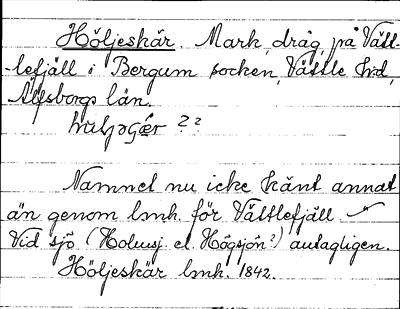 Höljeskär. Mark, dråg, på Vätt-
lefjäll i Bergum socken, Vättle hd,
Älfsborgs län.
??
Namnet nu icke känt annat
än genom lmk. för Vättlefjäll
Vid sjö (Holmsj. el. Högsjön?) antagligen.
Höljeskär lmk. 1842.